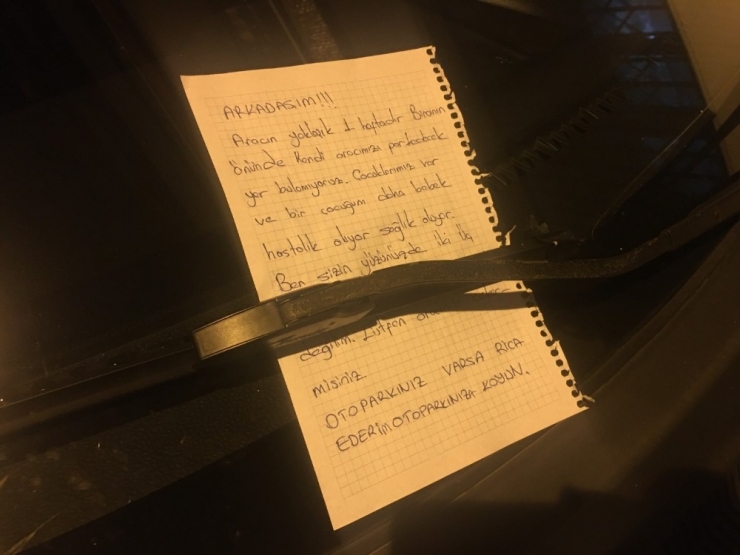 ARKADAŞIM!!!
Aracın yaklaşık 1 haftadır Binanın
önünde kendi aracımızı parkedecek
yer bulamıyoruz. Çocuklarımız var
ve bir çocuğum daha bebek
hastalık oluyor sağlık oluyor.
Ben sizin yüzünüzde iki üç
değilim. Lütfen
misiniz
OTOPARKINIZ VARSA RİCA
EDERİM OTOPARKINIZA KOYUN.